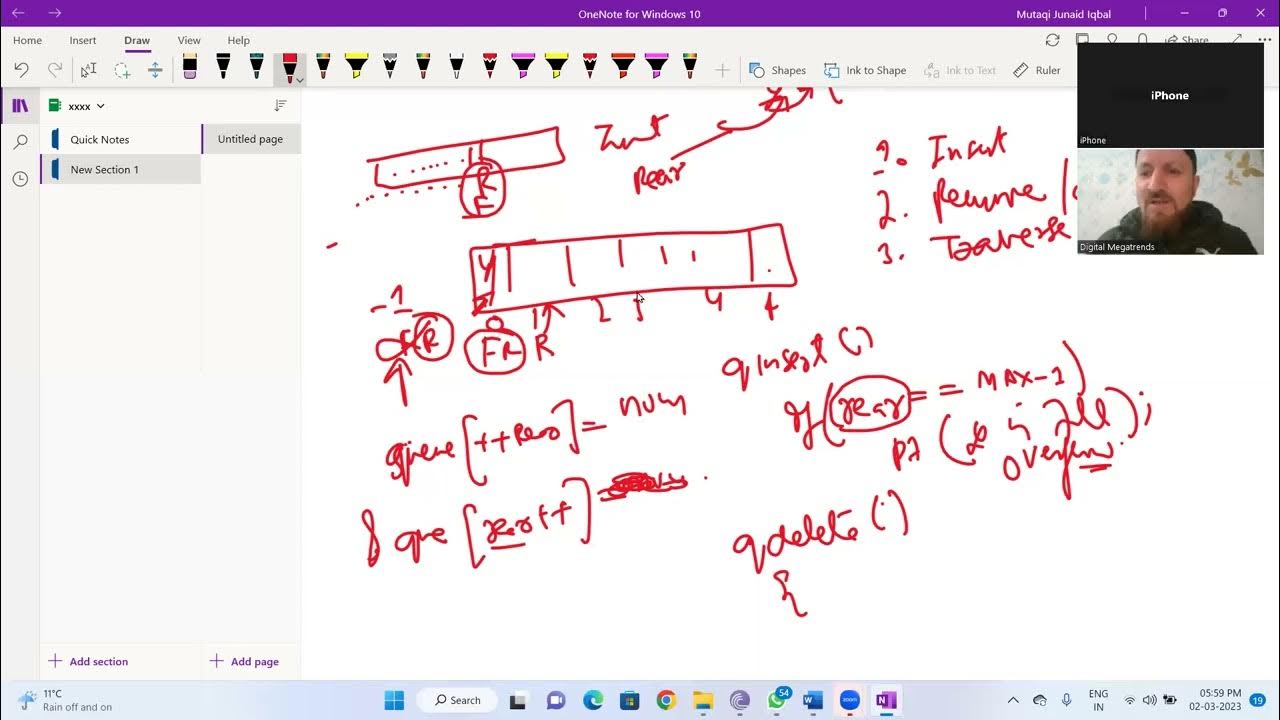 OneNote for Windows 10
Mutaqi Junaid Iqbal
Home Insert Draw View Help
Share
Shapes Ink to Shape Ink to Text Ruler
xxxx
Quick Notes
New Section 1
Untitled page
iPhone
iPhone
Digital Megatrends
Rear
R
F
1. Insert
2. Remove /
3. Traverse
-1
R
0 1 2 3 4
FR R
qinsert ( )
if (rear == MAX-1)
is full );
overflow
queue [++Rear] = num
que [rear++]
qdelete ( )
{
Add section
Add page
11°C
Rain off and on
Search
54
ENG
IN
05:59 PM
02-03-2023
19